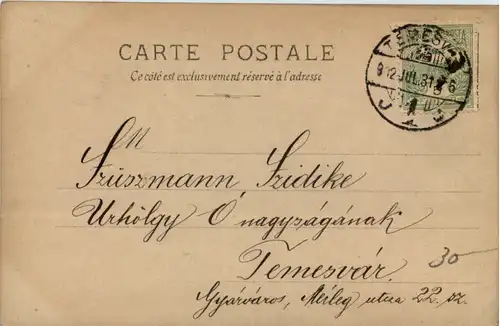 CARTE POSTALE
Ce côté est exclusivement réservé à l'adresse
TEMESV
912 JUL. 31
Szüszmann Szidike
Urhölgy Ő nagyságának
Temesvár.
Gyárváros, Mérleg utca 22. sz.
30